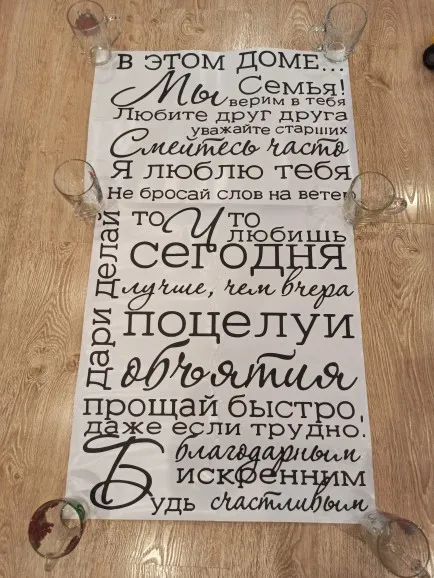 В ЭТОМ ДОМЕ...
Мы Семья!
верим в тебя
Любите друг друга
уважайте старших
Смейтесь часто
Я люблю тебя
Не бросай слов на ветер
делай то Что
любишь
сегодня
лучше, чем вчера
дари поцелуи
объятия
прощай быстро,
даже если трудно.
Будь благодарным
искренним
счастливым